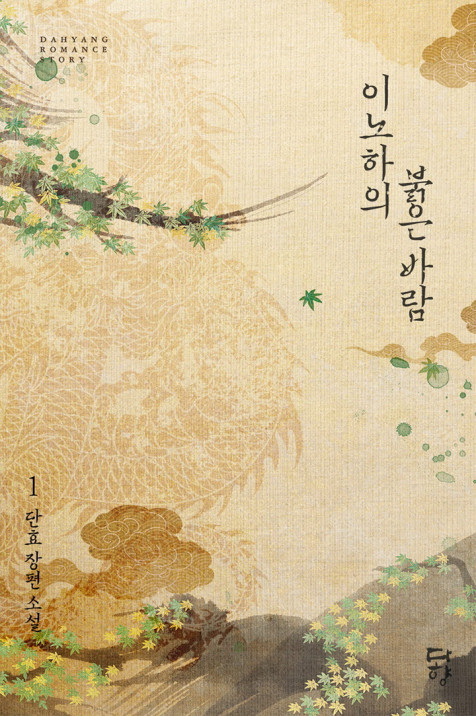 DAHYANG
ROMANCE
STORY
이노하의
붉은 바람
1 단효 장편 소설
다향